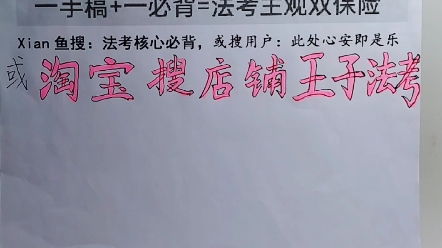 一手稿+一必背=法考主观双保险
Xian 鱼搜：法考核心必背，或搜用户：此处心安即是乐
或淘宝搜店铺王子法考